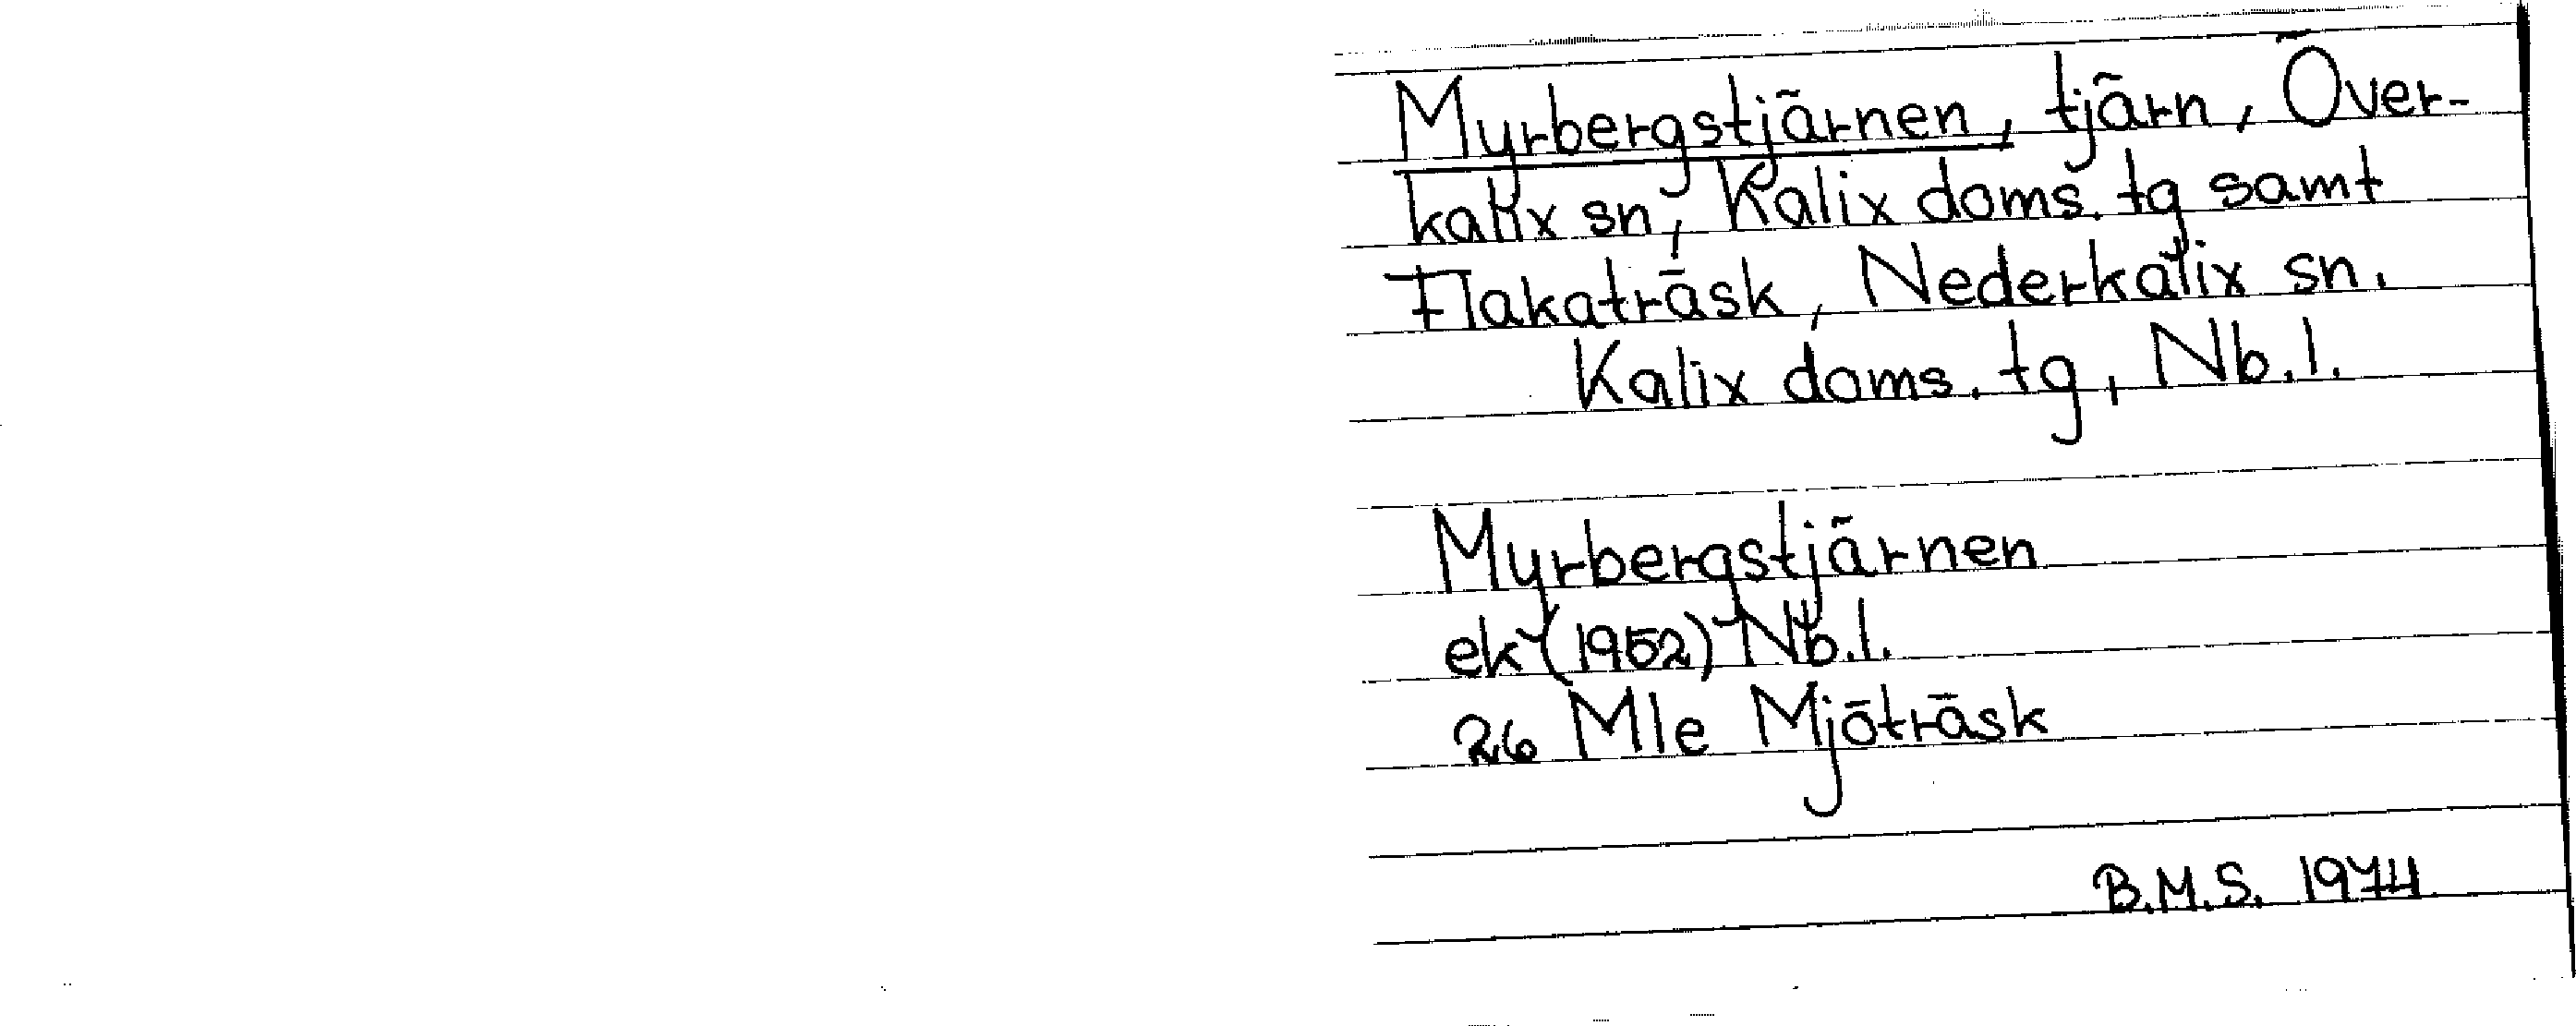 Myrbergstjärnen, tjärn, Över-
kalix sn, Kalix doms. tg samt
Flakaträsk, Nederkalix sn.
Kalix doms. tg, Nb.l.
Myrbergstjärnen
ek (1952) Nb.l.
26 Mle Mjöträsk
B.M.S. 1974